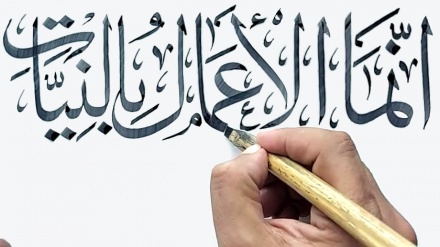 إنّما الأعمال بالنيّات